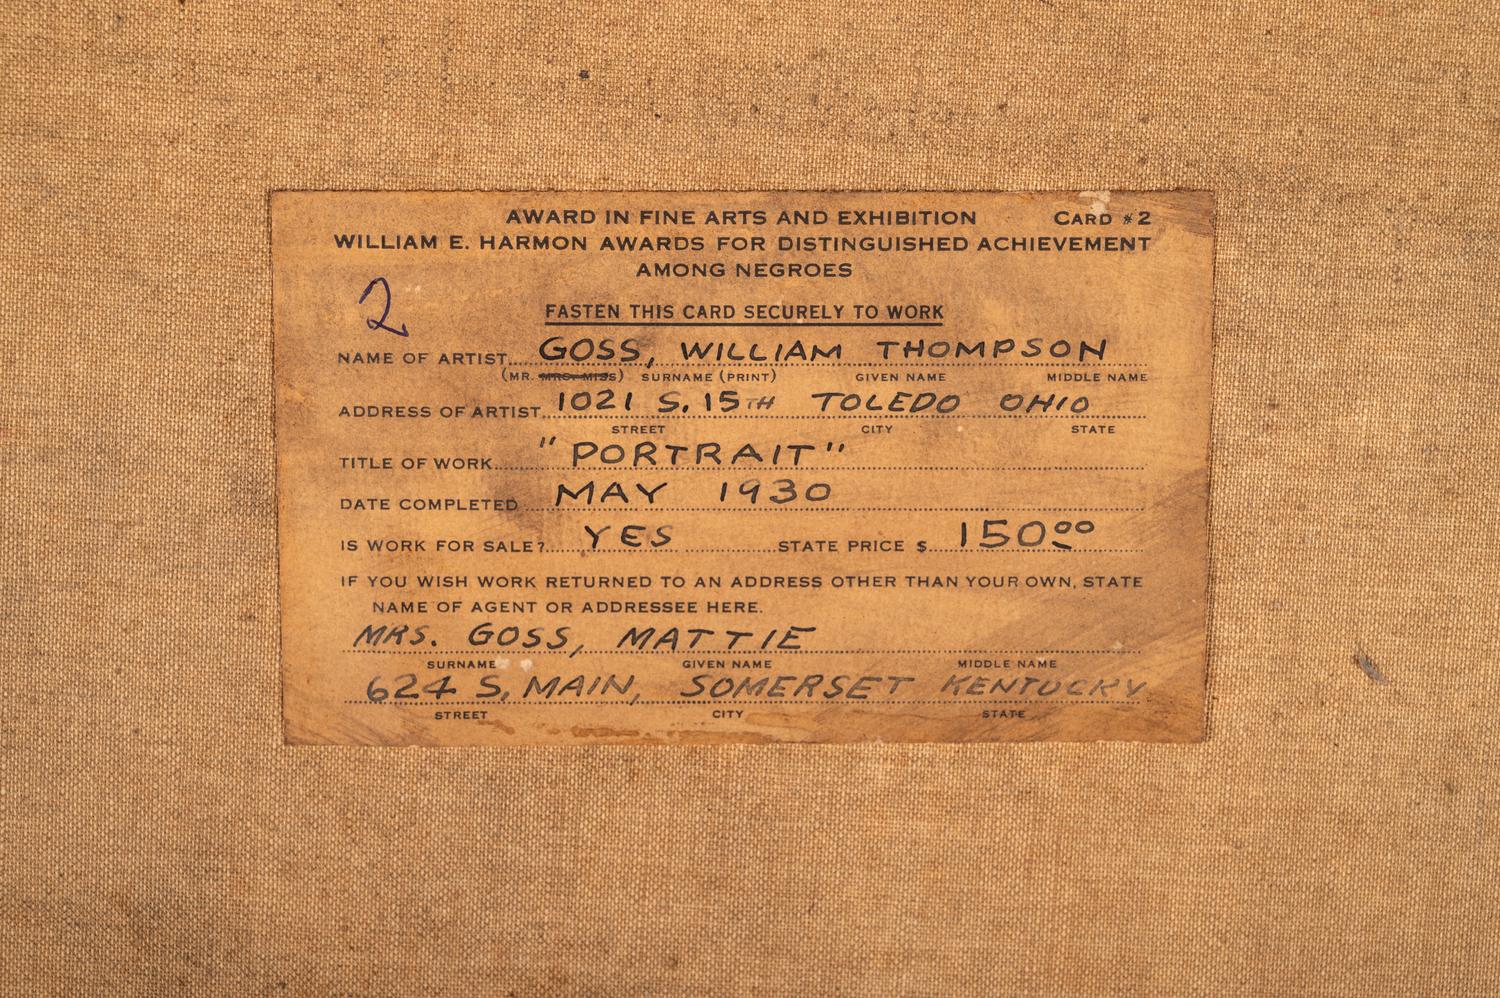 AWARD IN FINE ARTS AND EXHIBITION CARD #2
WILLIAM E. HARMON AWARDS FOR DISTINGUISHED ACHIEVEMENT
AMONG NEGROES
2
FASTEN THIS CARD SECURELY TO WORK
NAME OF ARTIST GOSS, WILLIAM THOMPSON
(MR. MRS. MISS) SURNAME (PRINT) GIVEN NAME MIDDLE NAME
ADDRESS OF ARTIST 1021 S. 15TH TOLEDO OHIO
STREET CITY STATE
TITLE OF WORK "PORTRAIT"
DATE COMPLETED MAY 1930
IS WORK FOR SALE? YES STATE PRICE $ 150 00
IF YOU WISH WORK RETURNED TO AN ADDRESS OTHER THAN YOUR OWN, STATE
NAME OF AGENT OR ADDRESSEE HERE.
MRS. GOSS, MATTIE
SURNAME GIVEN NAME MIDDLE NAME
624 S. MAIN, SOMERSET KENTUCKY
STREET CITY STATE